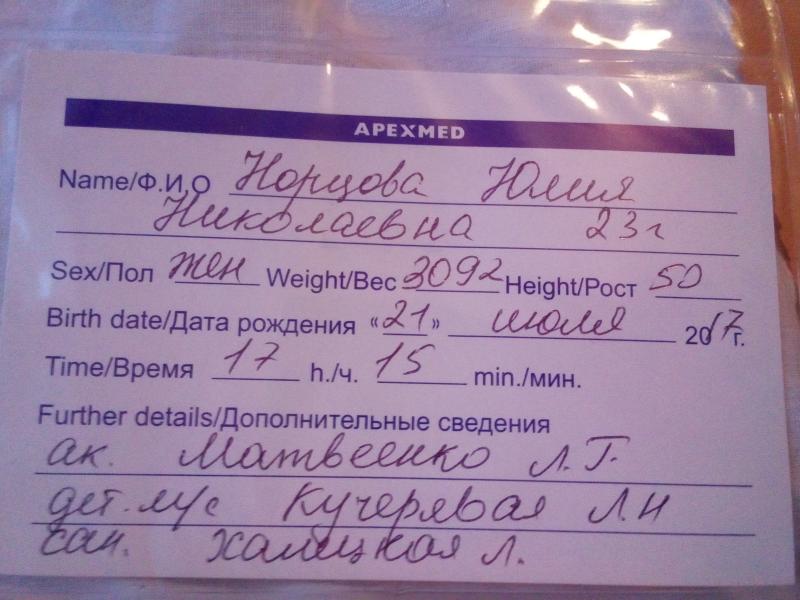 APEXMED
Name/Ф.И.О Норцова Юлия
Николаевна 23г
Sex/Пол жен Weight/Вес 3092 Height/Рост 50
Birth date/Дата рождения «21» июля 2017г.
Time/Время 17 h./ч. 15 min./мин.
Further details/Дополнительные сведения
ак. Матвеенко Л.Г.
дет. м/с Кучерявая Л.Н
сан. Халицкая Л.